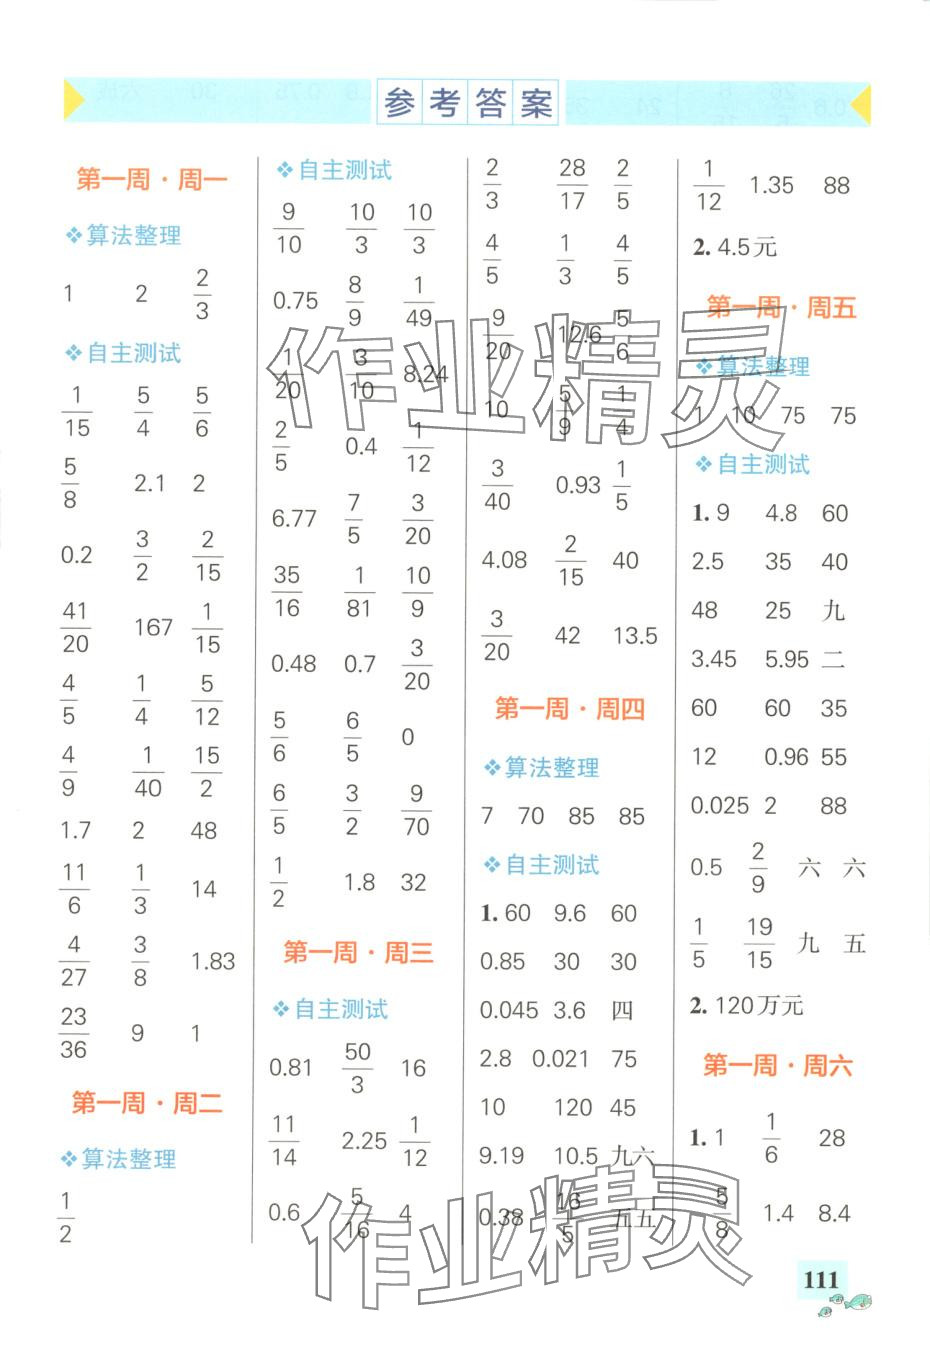 参考答案
第一周·周一
❖算法整理
1 2 2/3
❖自主测试
1/15 5/4 5/6
5/8 2.1 2
0.2 3/2 2/15
41/20 167 1/15
4/5 1/4 5/12
4/9 1/40 15/2
1.7 2 48
11/6 1/3 14
4/27 3/8 1.83
23/36 9 1
第一周·周二
❖算法整理
1/2
❖自主测试
9/10 10/3 10/3
0.75 8/9 1/49
1/20 3/10 8.24
2/5 0.4 1/12
6.77 7/5 3/20
35/16 1/81 10/9
0.48 0.7 3/20
5/6 6/5 0
6/5 3/2 9/70
1/2 1.8 32
第一周·周三
❖自主测试
0.81 50/3 16
11/14 2.25 1/12
0.6 5/16 4
2/3 28/17 2/5
4/5 1/3 4/5
9/20 12.6 5/6
10 5/9 1/4
3/40 0.93 1/5
4.08 2/15 40
3/20 42 13.5
第一周·周四
❖算法整理
7 70 85 85
❖自主测试
1. 60 9.6 60
0.85 30 30
0.045 3.6 四
2.8 0.021 75
10 120 45
9.19 10.5 九六
0.38 16/5 五五
1/12 1.35 88
2. 4.5元
第一周·周五
❖算法整理
1 10 75 75
❖自主测试
1. 9 4.8 60
2.5 35 40
48 25 九
3.45 5.95 二
60 60 35
12 0.96 55
0.025 2 88
0.5 2/9 六 六
1/5 19/15 九 五
2. 120万元
第一周·周六
1. 1 1/6 28
5/8 1.4 8.4
111
作业精灵
作业精灵